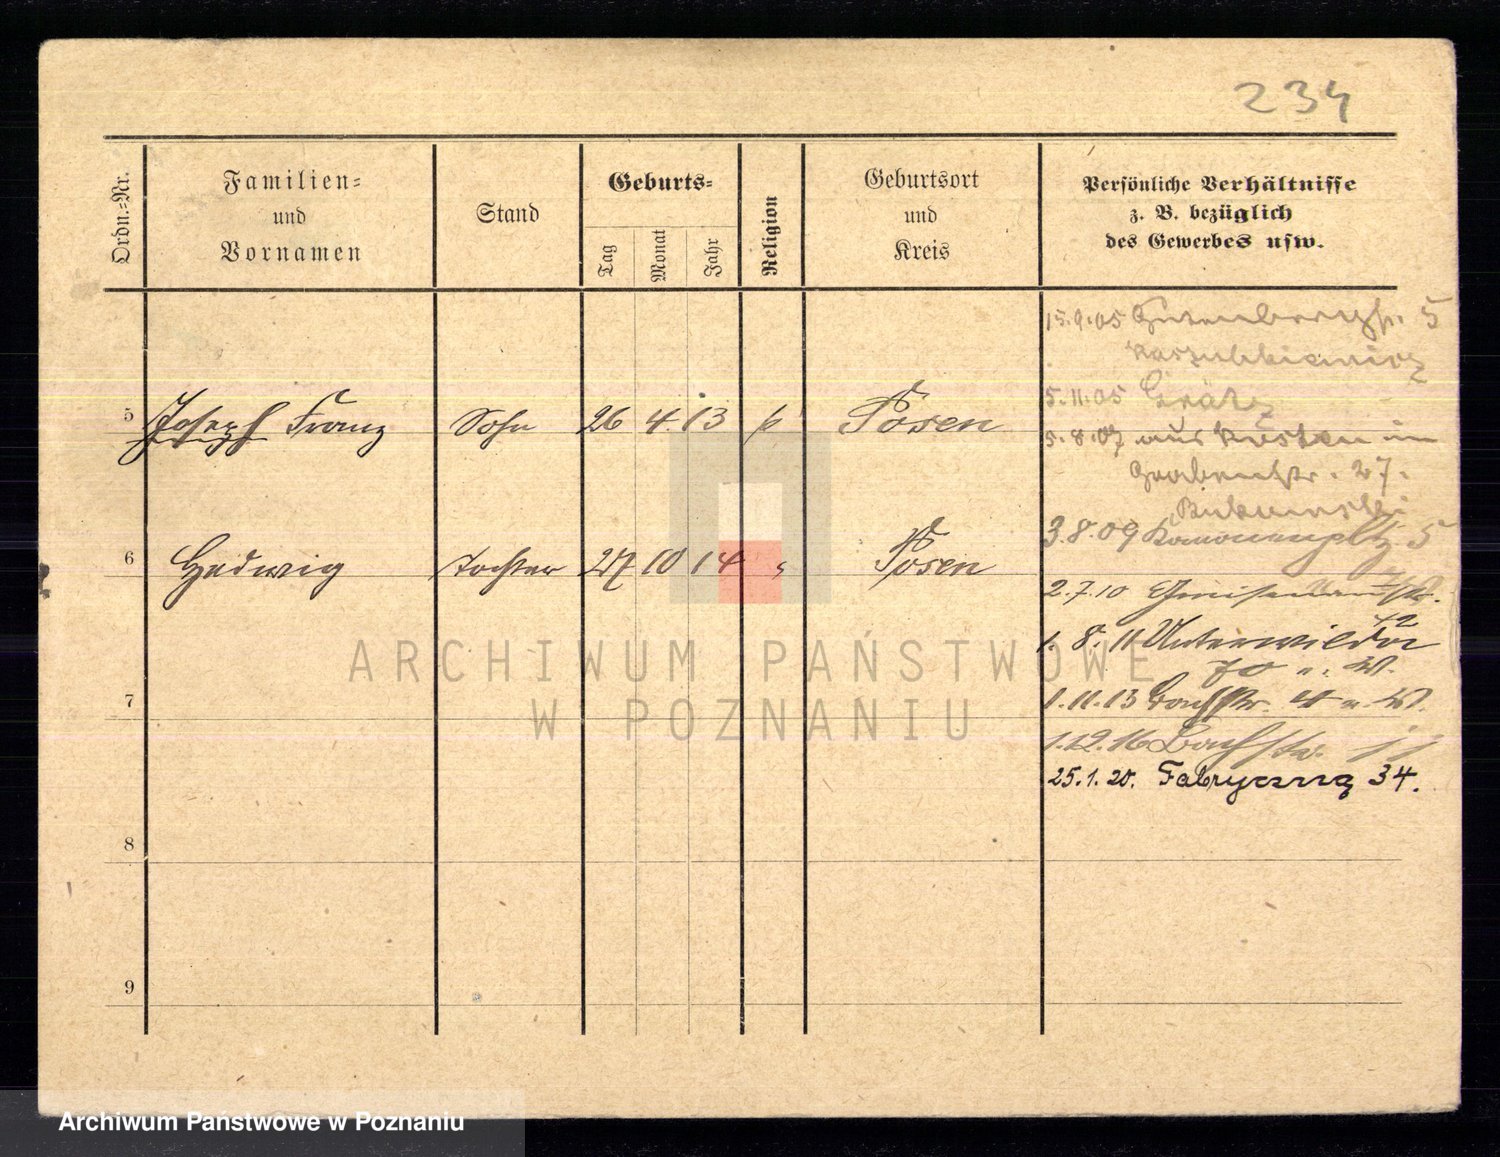 234
Ordn.-Nr.
Familien-
und
Vornamen
Stand
Geburts-
Tag
Monat
Jahr
Religion
Geburtsort
und
Kreis
Persönliche Verhältnisse
z. B. bezüglich
des Gewerbes usw.
15.9.05 Gutenbergstr. 5
5.11.05 Grätz
5.8.07 aus Kosten in
Grabenstr. 27.
3.8.09 5
5 Joseph Franz Sohn 26 4 13 k Posen
6 Hedwig Tochter 27 10 14 " Posen
2.7.10 Gneisenaustr.
42
1.8.11 Unterwilda
70 n. W.
7
1.11.13 Bachstr. 4 n. W.
1.12.16 Bachstr. 11
25.1.20. Fabryczna 34.
8
9
ARCHIWUM PAŃSTWOWE
W POZNANIU
Archiwum Państwowe w Poznaniu